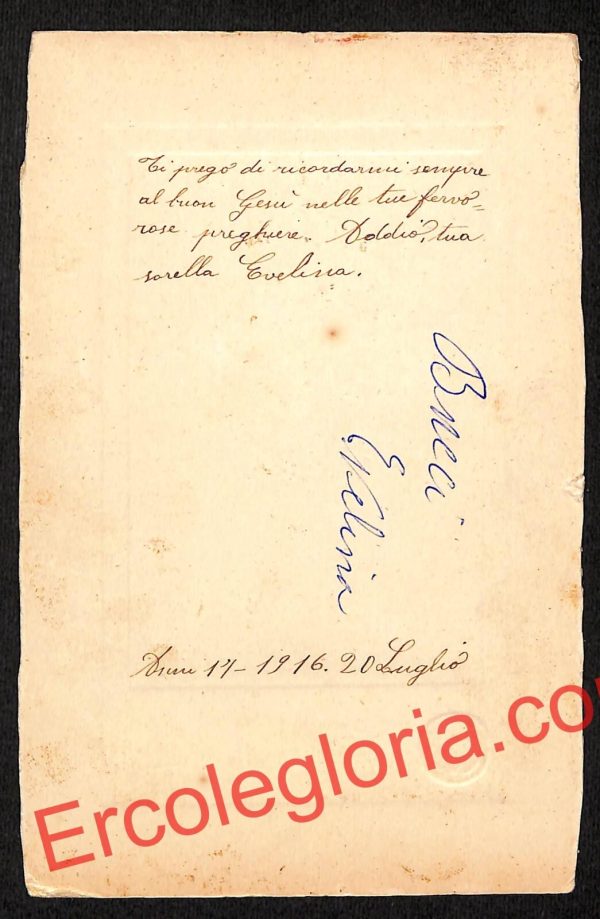 Ti prego di ricordarmi sempre
al buon Gesù nelle tue fervo=
rose preghiere. Addio, tua
sorella Evelina.
Bucci
Evelina
Anni 14 - 1916. 20 Luglio
Ercolegloria.co